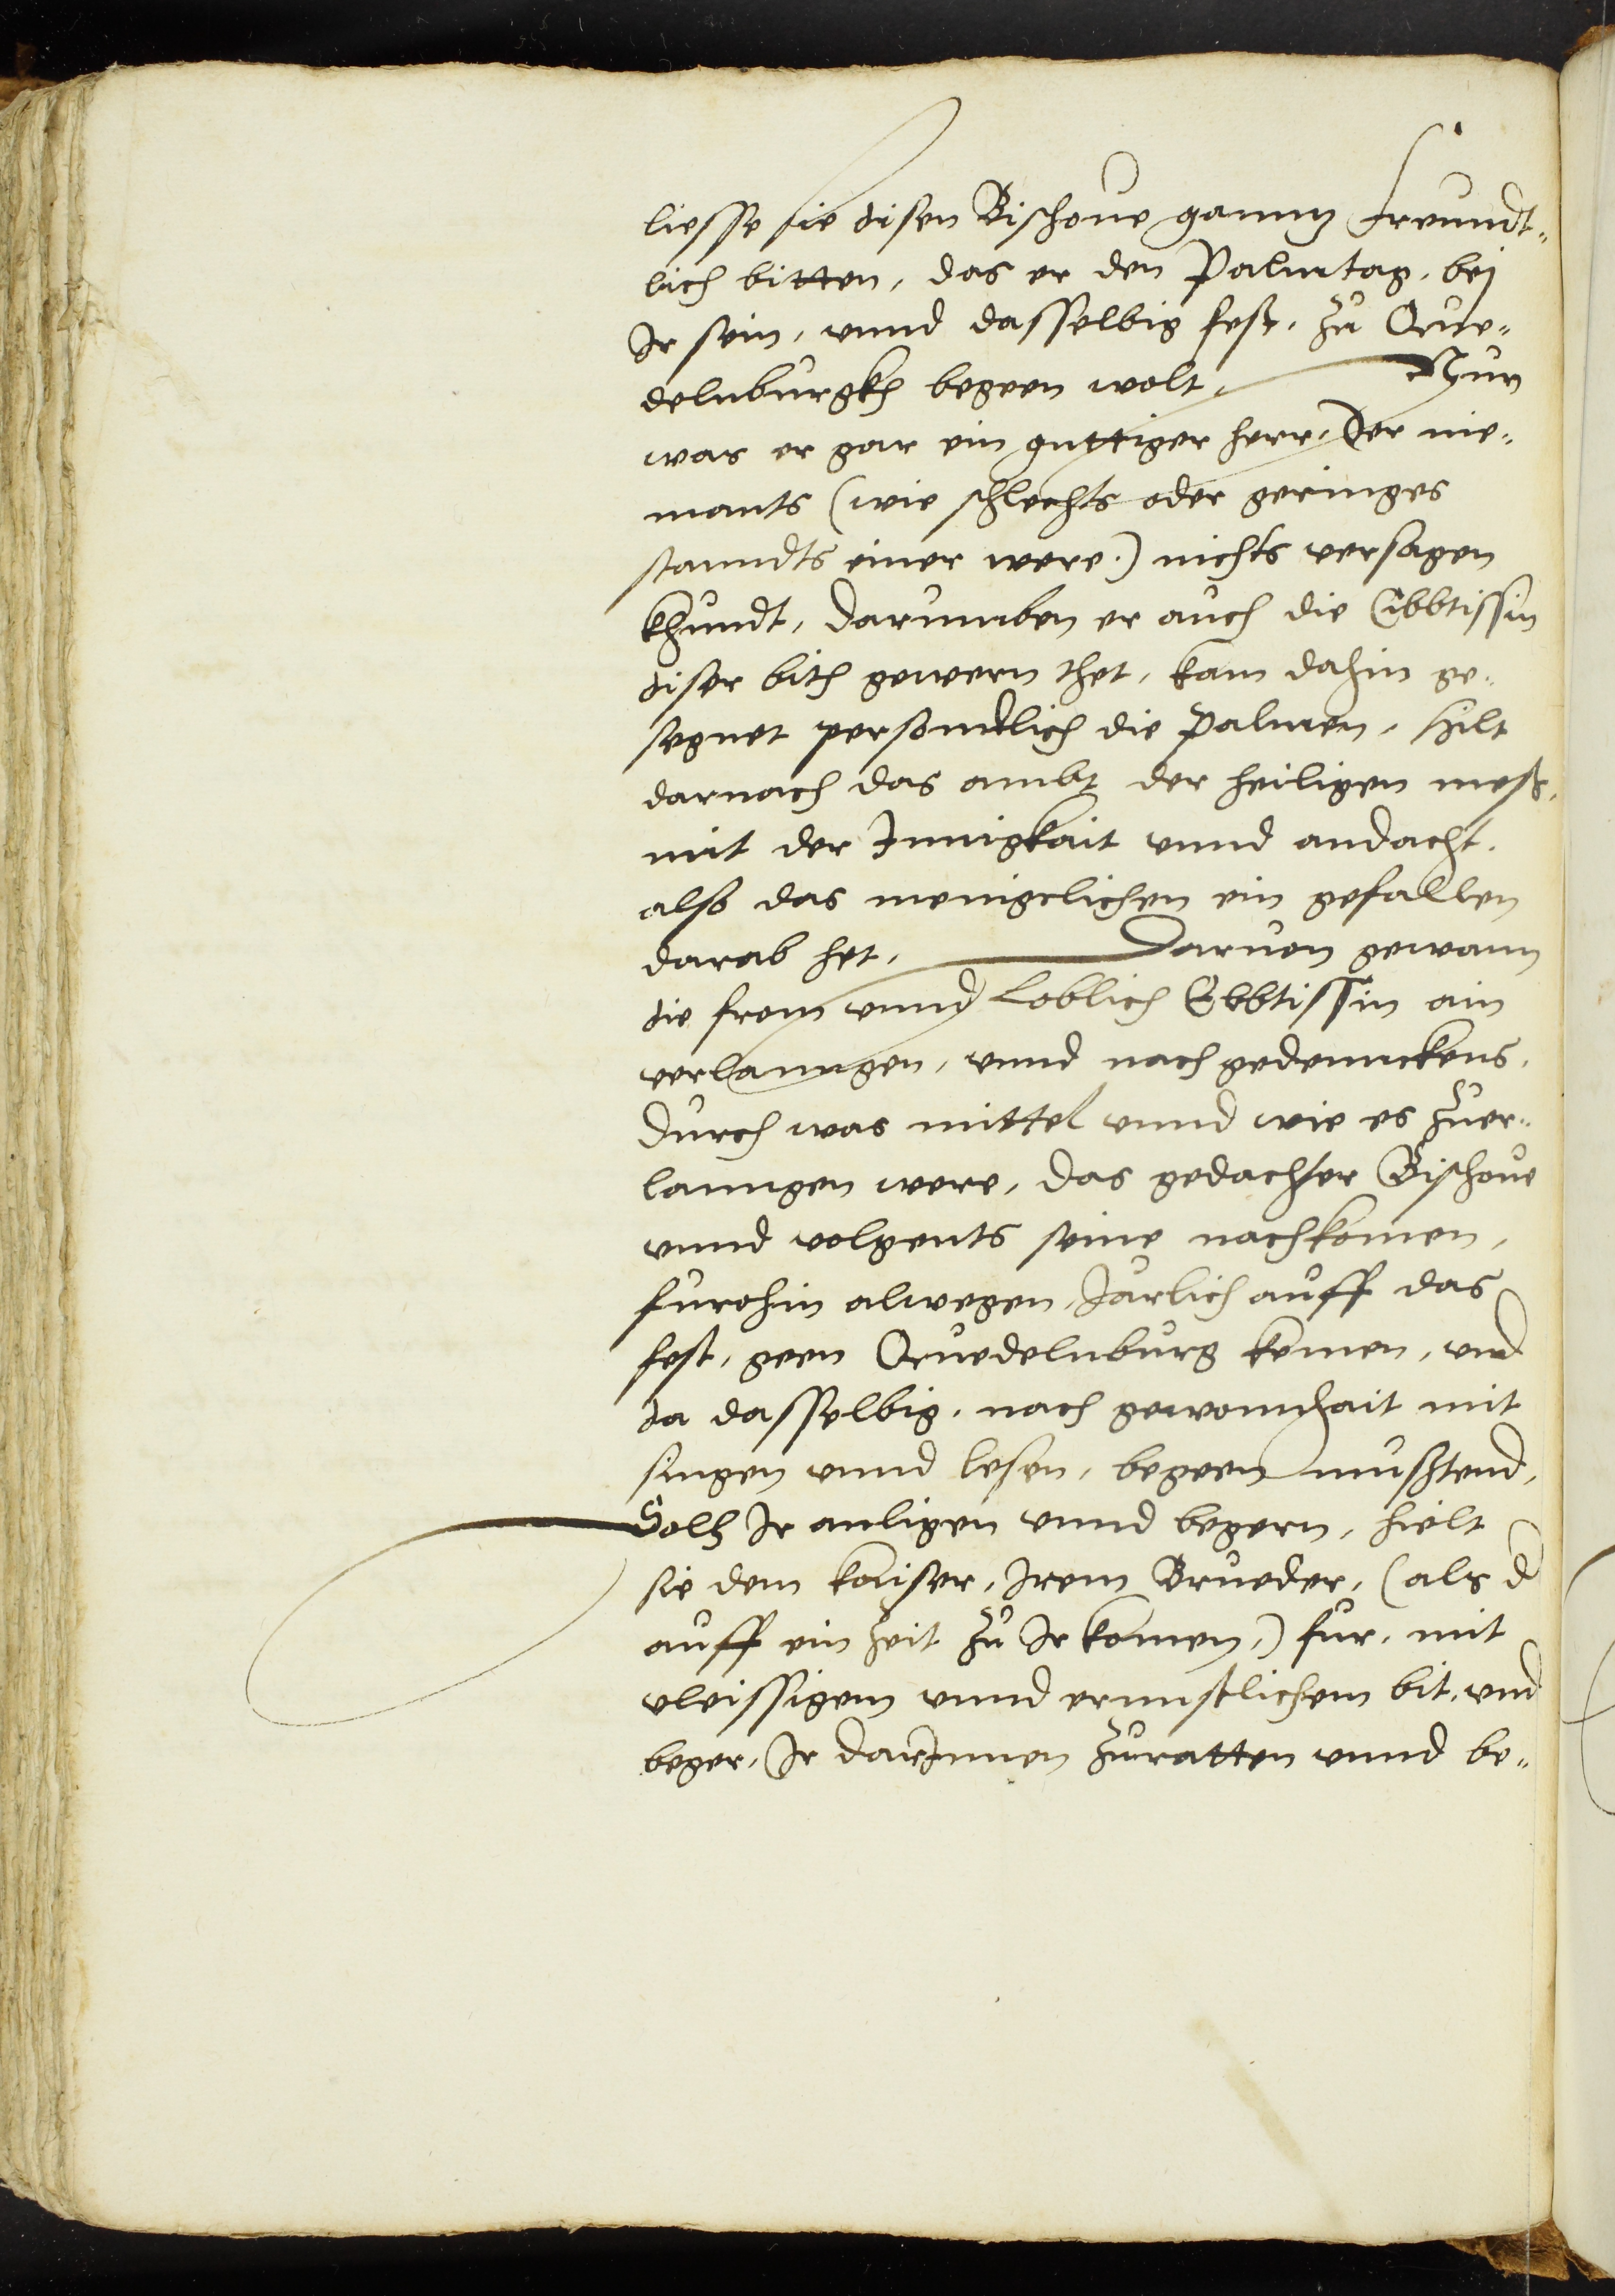 liesse sie disen Bischoue gannz freundt¬
lich bitten, das er den Palmtag, bej
Ir sein, vnnd dasselbig fest, zu Que¬
delnburgkh begeen wolt, Nun
was er gar ein guttiger herr, Der nie¬
mants (wie schlechts oder geringes
stanndts einer were.) nichts versagen
khundt, Darumben er auch die Ebbtissin
diser bith gewern thet, kam dahin ge¬
segnet personndlich die Palmen, hilt
darnach das ambt der heiligen mess,
mit der Innigkait vnnd andacht,
also das menigclichen ein gefallen
darab het, Daruon gewann
die from vnnd Loblich Ebbtissin ain
verlanngen, vnnd nachgedennckens,
Durch was mittel vnnd wie es zuer¬
lanngen were, Das gedachter Bischoue
vnnd volgents seine nachkomen,
furohin alwegen, Jarlich auff das
fest, geen Quedelnburg komen, vnd
da dasselbig, nach gewonnhait mit
singen vnnd lesen, begeen mussstend,
Solh Ir anligen vnnd begern, hielt
sie dem kaiser, Irem Brueder, (als d
auff ein zeit zu Ir komen,) fur, mit
vleissigem vnnd ernnstlichem bit, vnd
beger, Ir darInnen zuratten vnnd be¬